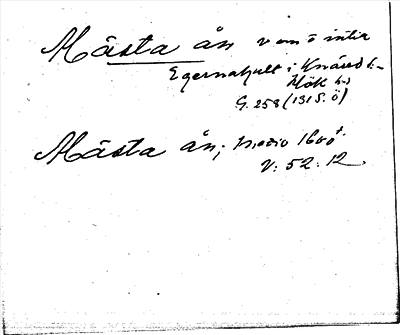 Mästa ån v om ö intill
Egernahult i Knäred s:n
Hök hd
G. 258 (1315. Ö)
Mästa ån; medio 1600t.
V: 52: 12.